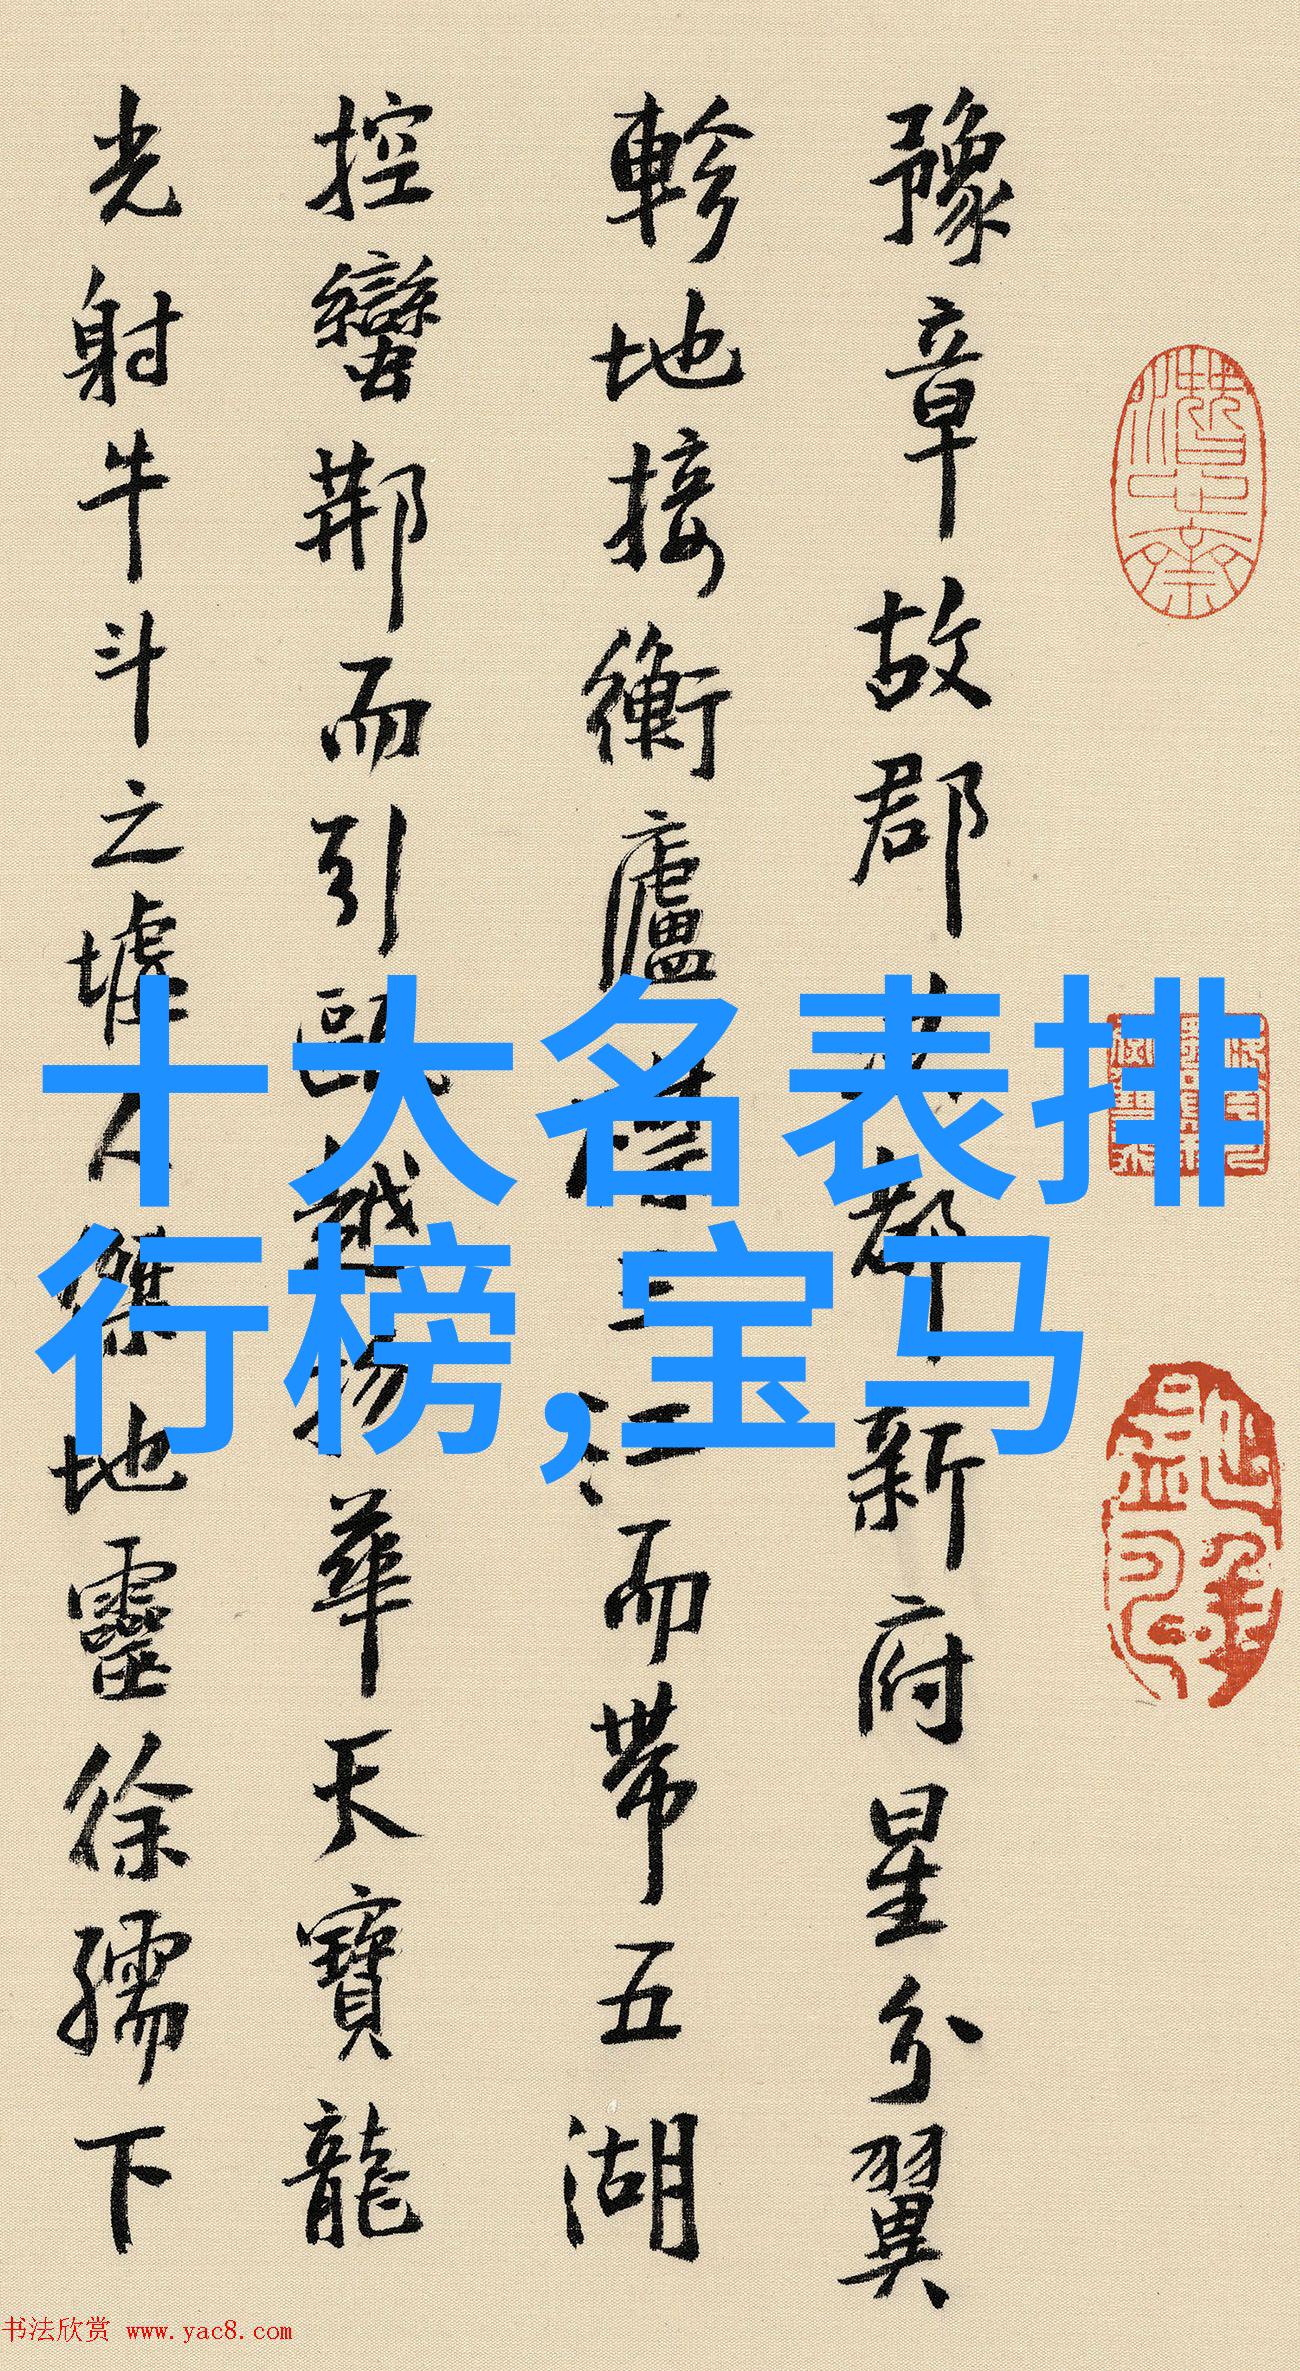 豫章故郡洪都新府星分翼
軫地接衡廬襟三江而帶五湖
控蠻荆而引甌越物華天寶龍
光射牛斗之墟人傑地靈徐孺下
十大名表排
行榜,宝马
书法欣赏 www.yac8.com